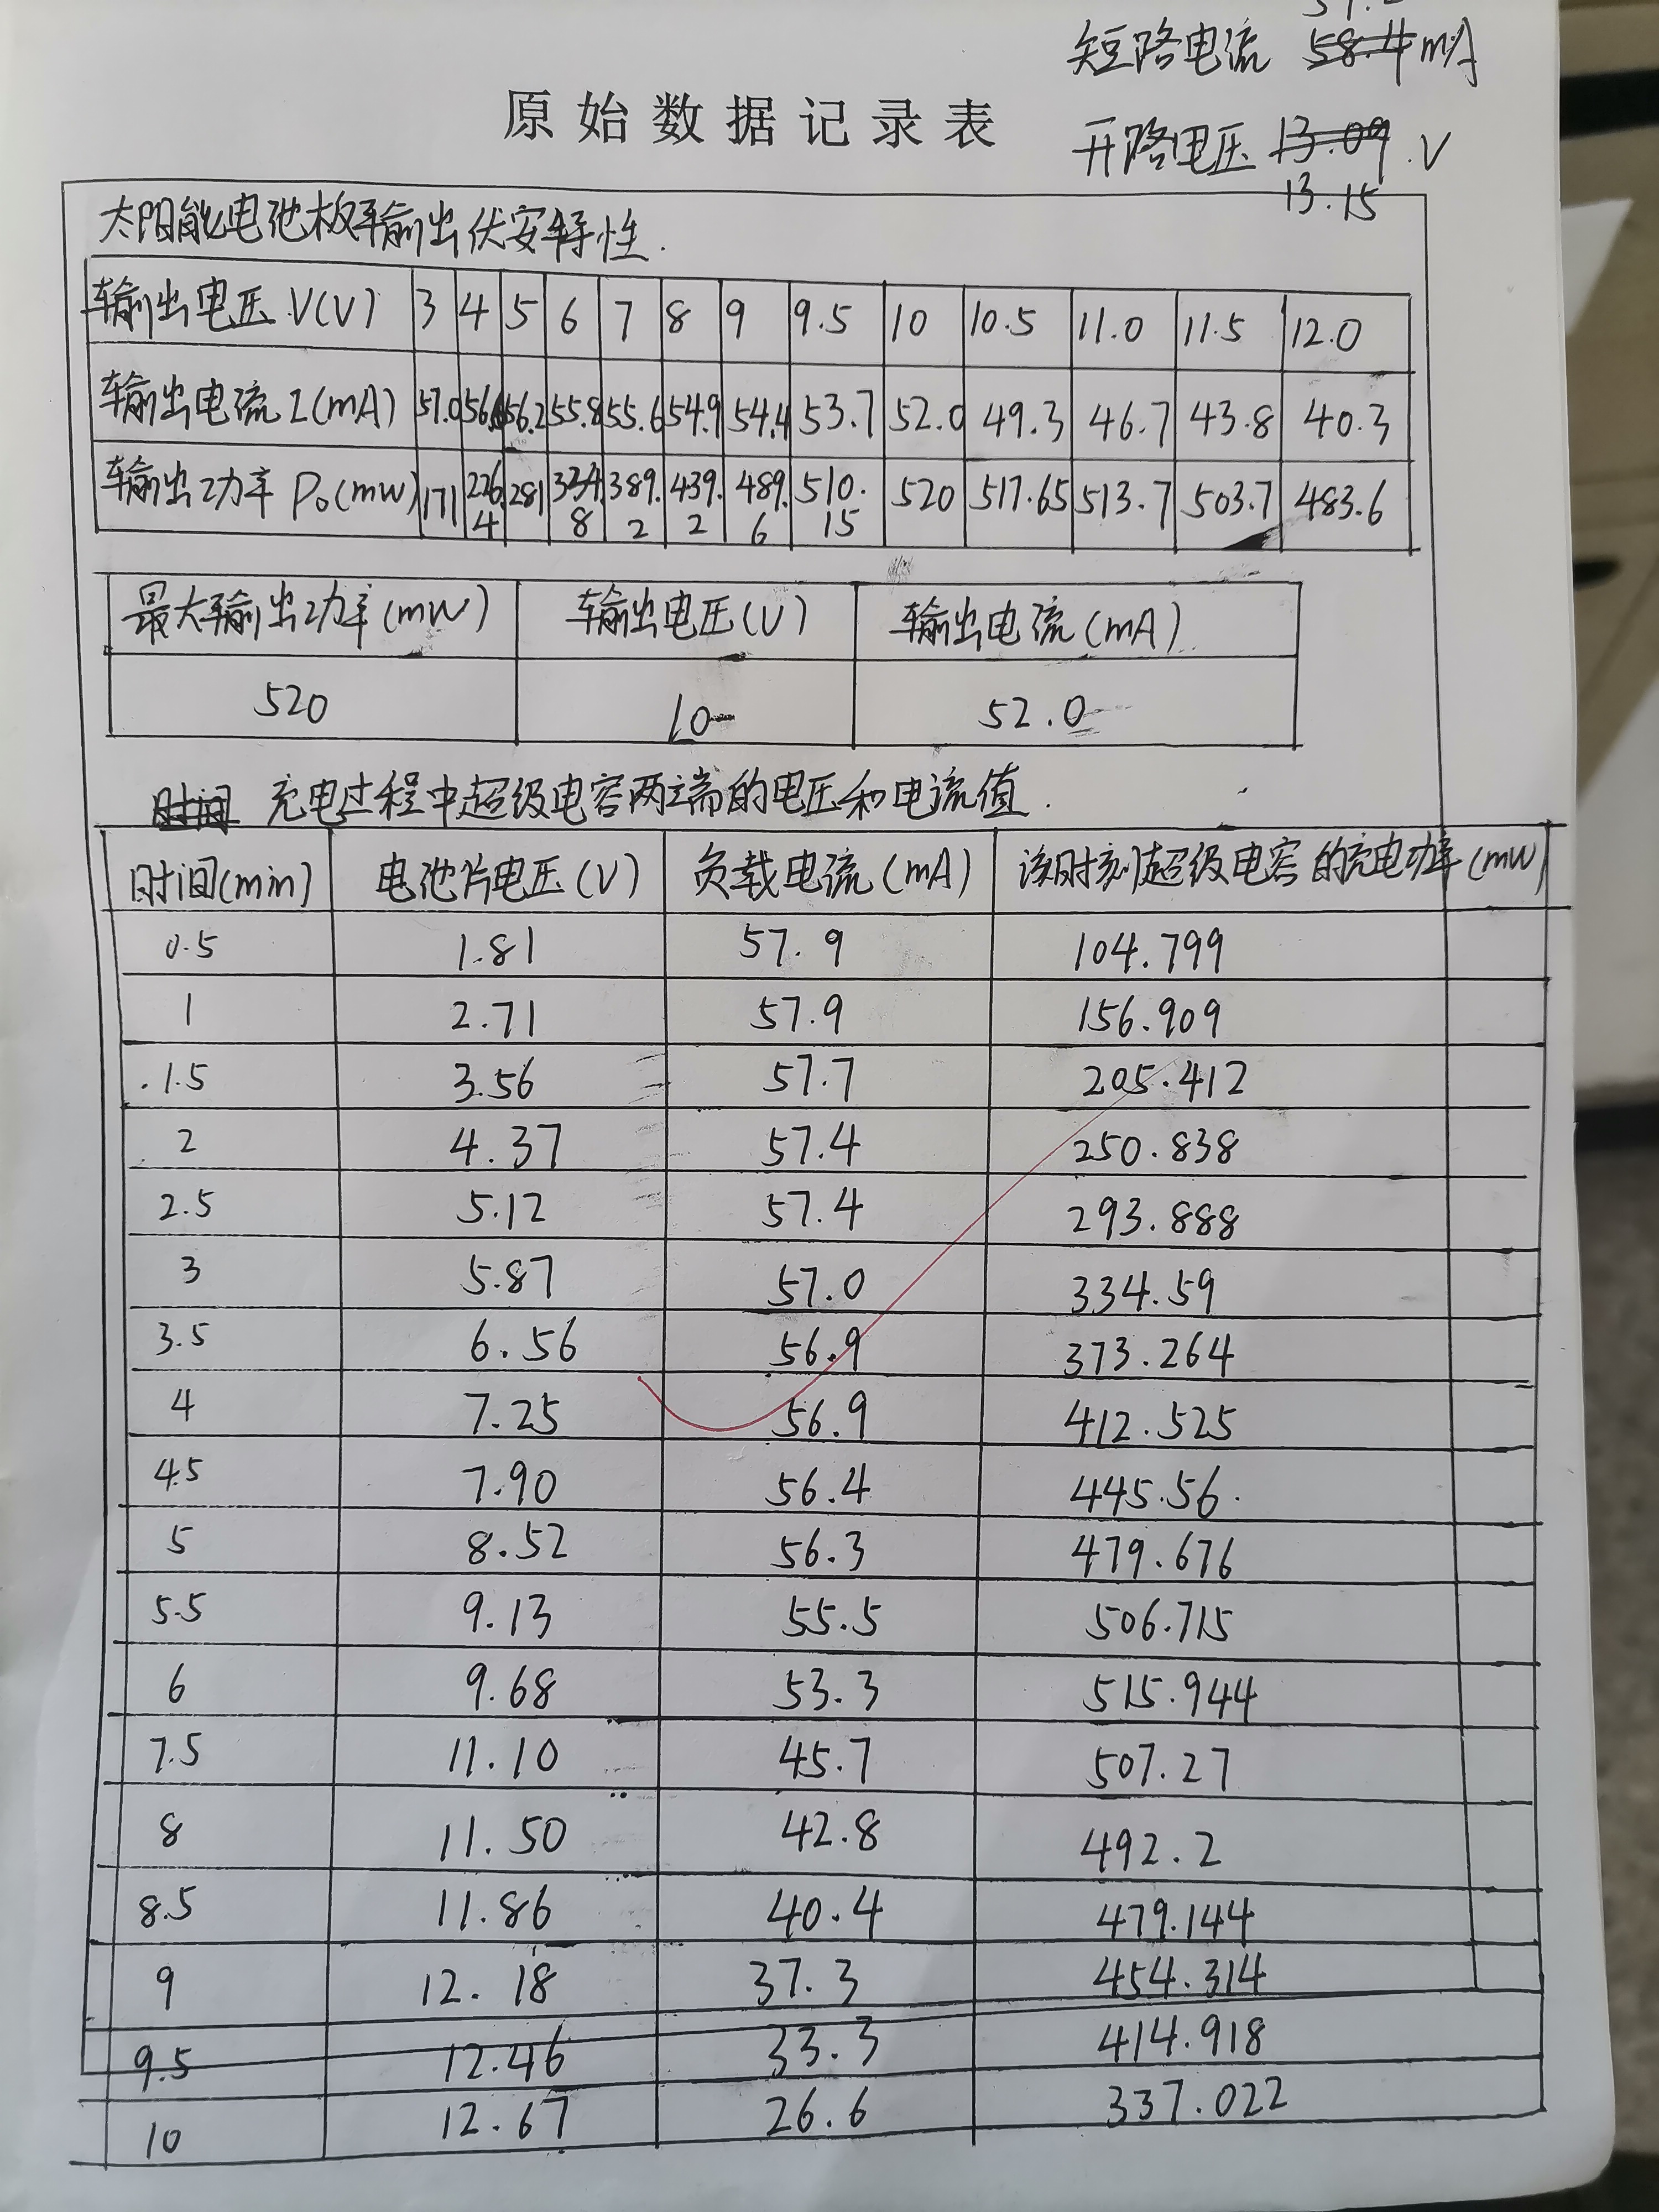 短路电流 58.4 mA
原始数据记录表
开路电压 13.09 V
13.15
太阳能电池板输出伏安特性.
输出电压 V(V) 3 4 5 6 7 8 9 9.5 10 10.5 11.0 11.5 12.0
输出电流 I(mA) 57.0 56.6 56.2 55.8 55.6 54.9 54.4 53.7 52.0 49.3 46.7 43.8 40.3
输出功率 Po(mW) 171 226.4 281 334.8 389.2 439.2 489.6 510.15 520 517.65 513.7 503.7 483.6
最大输出功率(mW) 输出电压(V) 输出电流(mA)
520 10 52.0
时间 充电过程中超级电容两端的电压和电流值.
时间(min) 电池片电压(V) 负载电流(mA) 该时刻超级电容的充电功率(mW)
0.5 1.81 57.9 104.799
1 2.71 57.9 156.909
1.5 3.56 57.7 205.412
2 4.37 57.4 250.838
2.5 5.12 57.4 293.888
3 5.87 57.0 334.59
3.5 6.56 56.9 373.264
4 7.25 56.9 412.525
4.5 7.90 56.4 445.56.
5 8.52 56.3 479.676
5.5 9.13 55.5 506.715
6 9.68 53.3 515.944
7.5 11.10 45.7 507.27
8 11.50 42.8 492.2
8.5 11.86 40.4 479.144
9 12.18 37.3 454.314
9.5 12.46 33.3 414.918
10 12.67 26.6 337.022